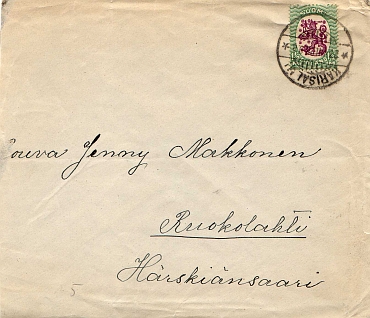 SUOMI
KARISALMI
Rouva Jenny Makkonen
Ruokolahti
Härskiänsaari
5